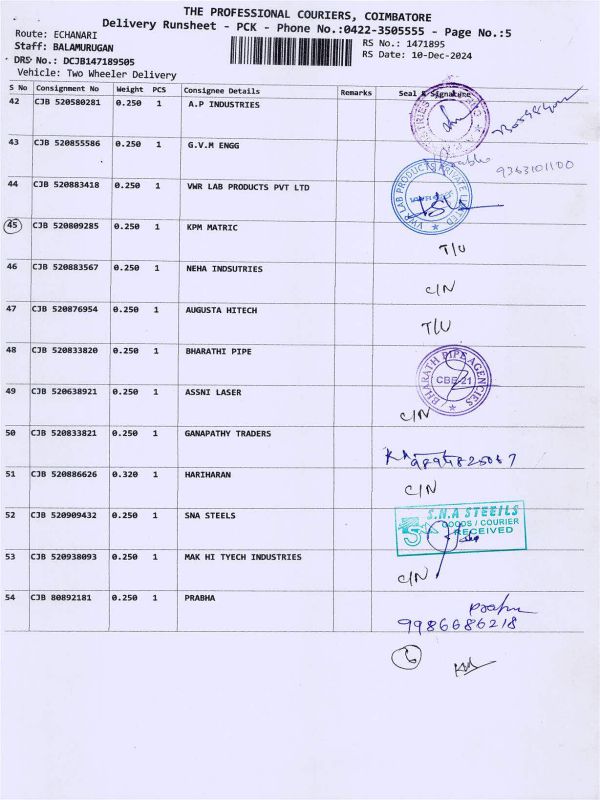 THE PROFESSIONAL COURIERS, COIMBATORE
Delivery Runsheet - PCK - Phone No.:0422-3505555 - Page No.:5
Route: ECHANARI
RS No.: 1471895
Staff: BALAMURUGAN
RS Date: 10-Dec-2024
DRS No.: DCJB147189505
Vehicle: Two Wheeler Delivery
S No Consignment No Weight PCS Consignee Details Remarks Seal & Signature
42 CJB 520580281 0.250 1 A.P INDUSTRIES
43 CJB 520855586 0.250 1 G.V.M ENGG
9363101100
44 CJB 520883418 0.250 1 VWR LAB PRODUCTS PVT LTD
VWR LAB PRODUCTS PRIVATE LIMITED
45 CJB 520809285 0.250 1 KPM MATRIC
T/U
46 CJB 520883567 0.250 1 NEHA INDSUTRIES
C/N
47 CJB 520876954 0.250 1 AUGUSTA HITECH
T/U
48 CJB 520833820 0.250 1 BHARATHI PIPE
BHARATH PIPE AGENCIES
CBE-21
49 CJB 520638921 0.250 1 ASSNI LASER
C/N
50 CJB 520833821 0.250 1 GANAPATHY TRADERS
51 CJB 520886626 0.320 1 HARIHARAN
C/N
52 CJB 520909432 0.250 1 SNA STEELS
S.N.A STEEILS
GOODS / COURIER
RECEIVED
53 CJB 520938093 0.250 1 MAK HI TYECH INDUSTRIES
C/N
54 CJB 80892181 0.250 1 PRABHA
9986686218
6